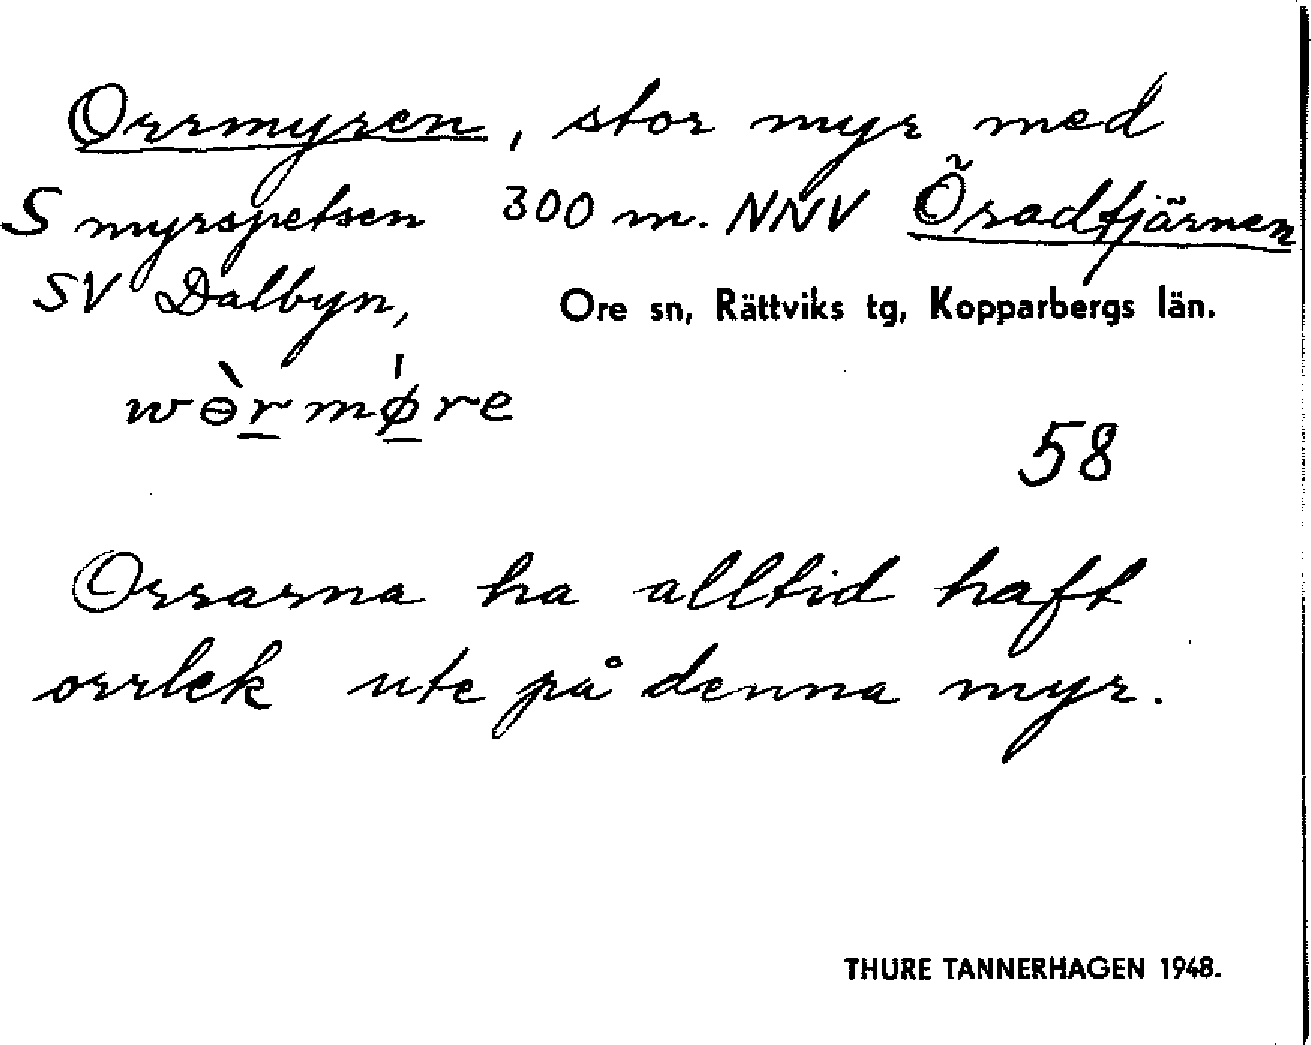 Orrmyren, stor myr med
S myrspetsen 300 m. NNV Öradtjärnen
SV Dalbyn, Ore sn, Rättviks tg, Kopparbergs län.
wɵ̀rmǿre
58
Orrarna ha alltid haft
orrlek ute på denna myr.
THURE TANNERHAGEN 1948.